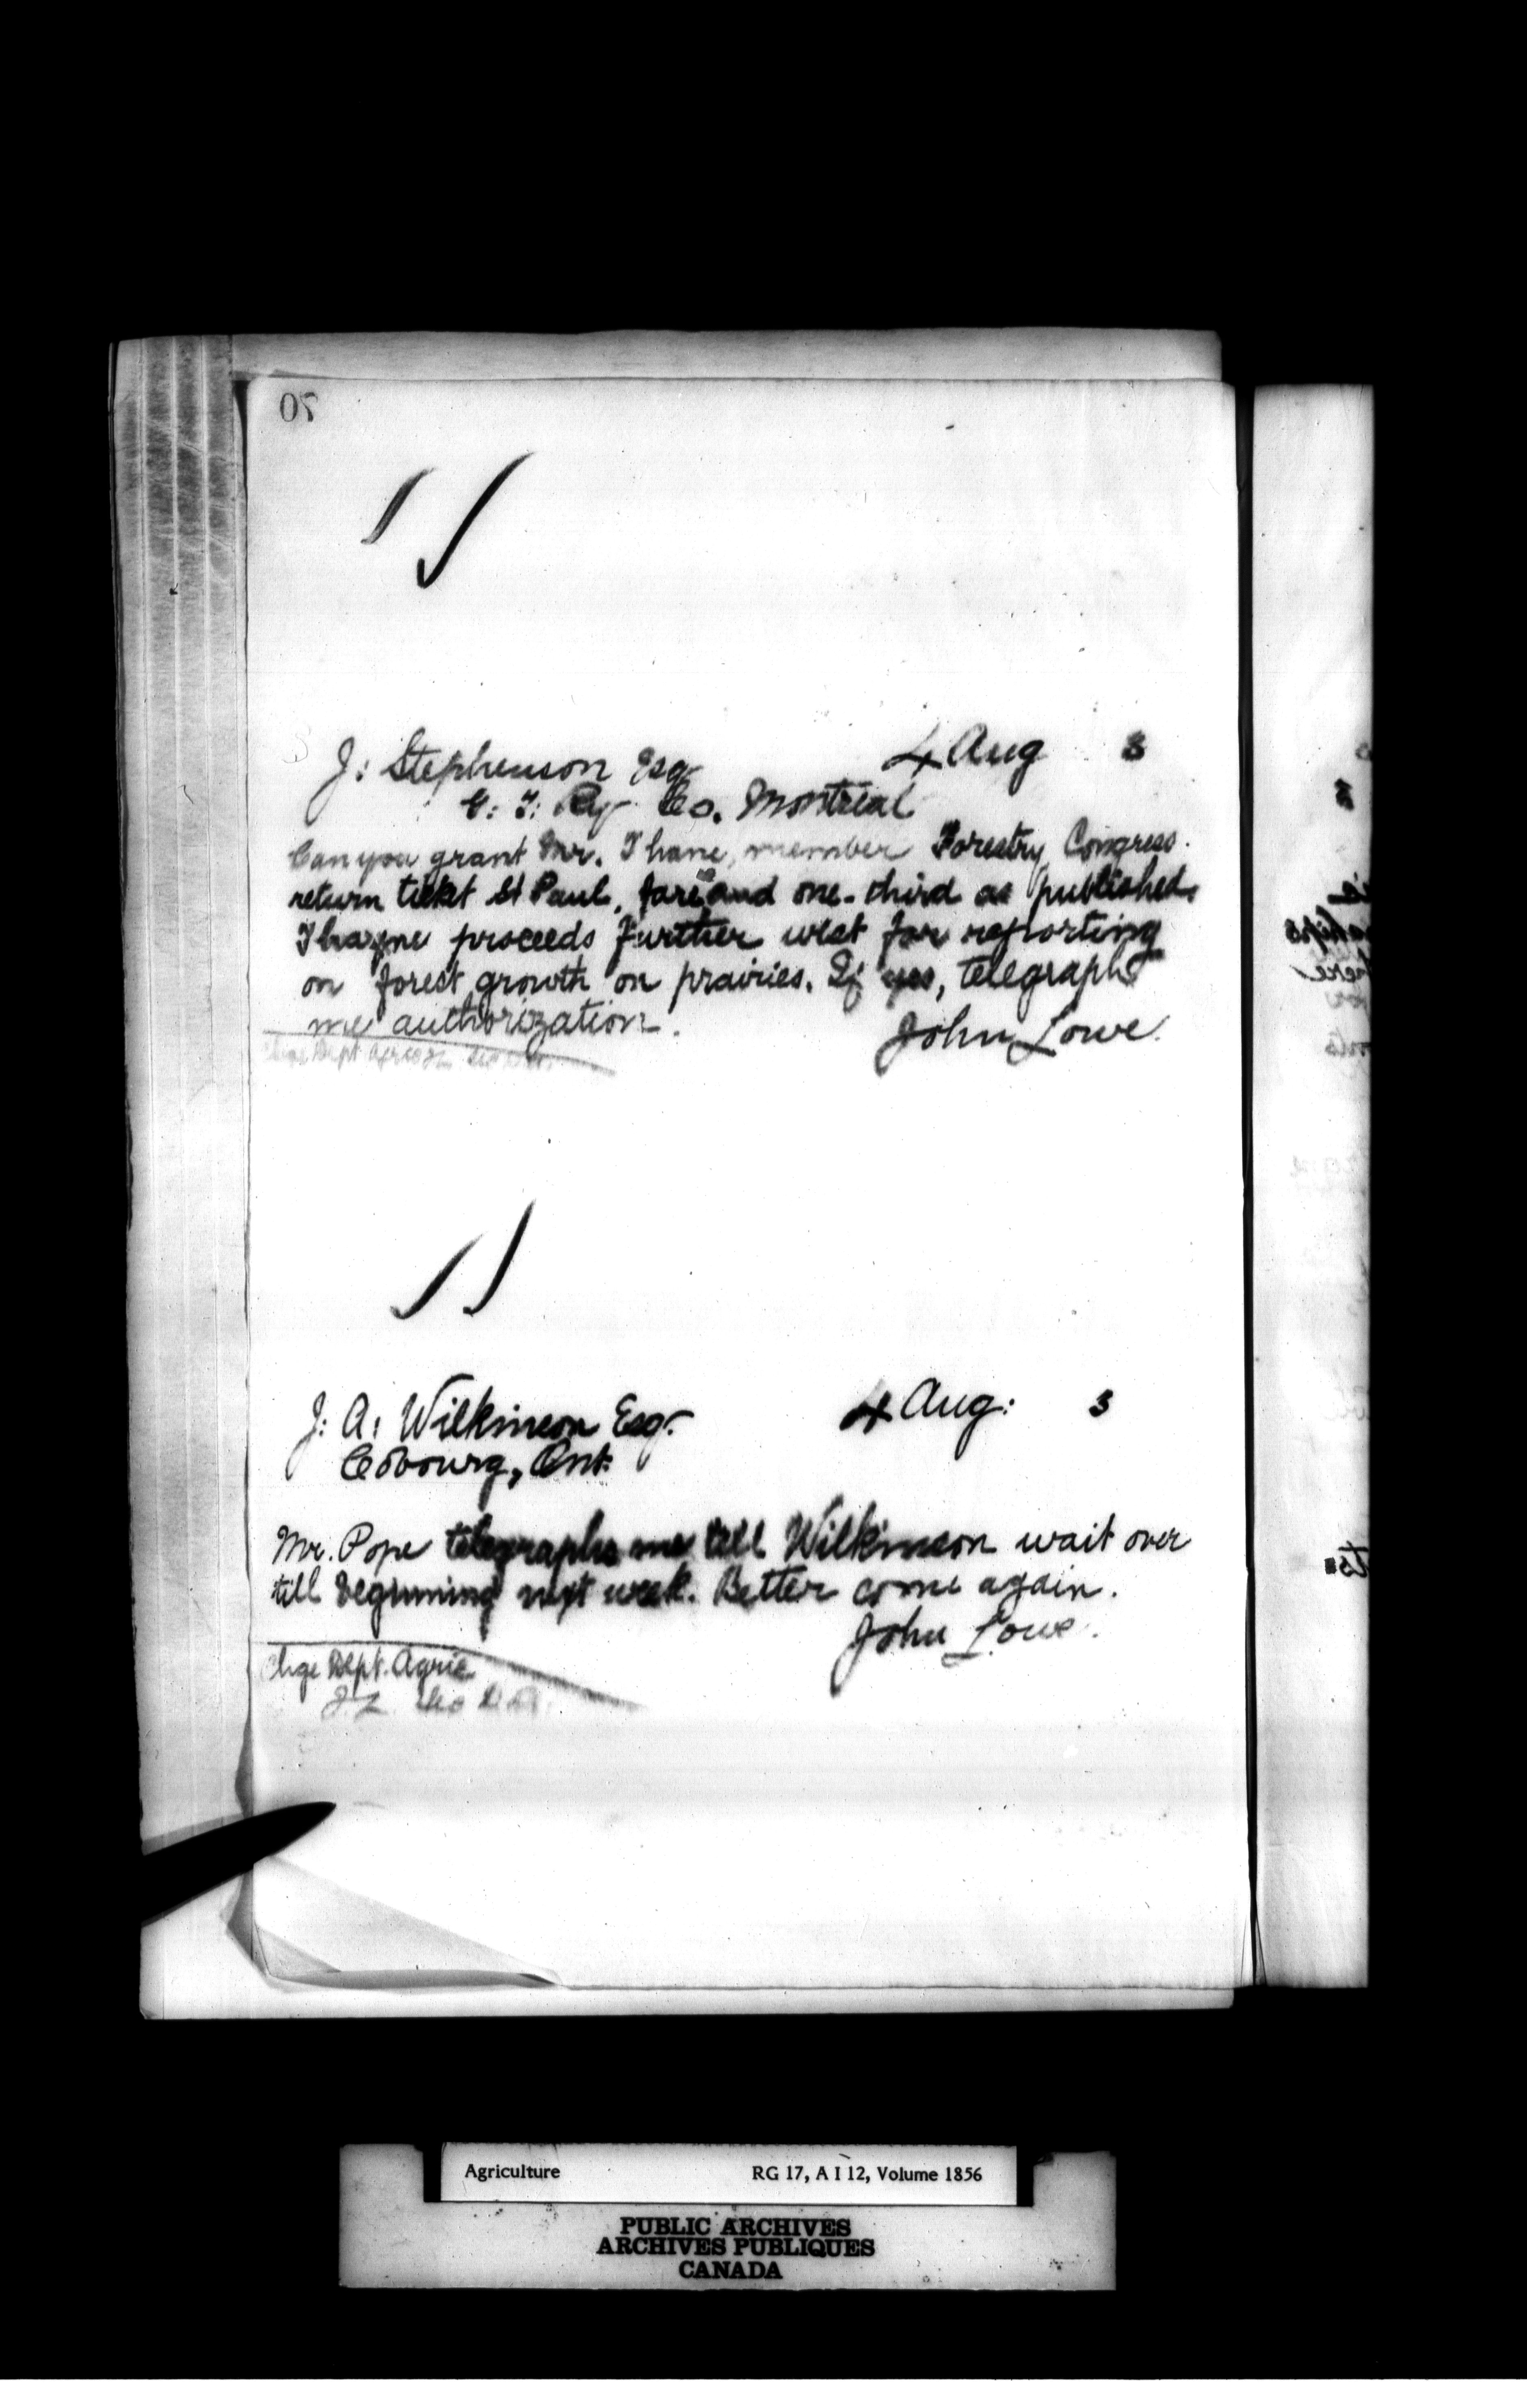 70
J: Stephenson Esq 4 Aug 3
G: T: Ry Co. Montreal
Can you grant Mr. Thane, member Forestry Congress.
return ticket St Paul, fare and one-third as published.
proceeds further west for reporting
on forest growth on prairies. If yes, telegraph
me authorization.
John Lowe.
Chge Dept Agric
J: A: Wilkinson Esq. 4 Aug: 3
Cobourg, Ont.
Mr. Pope telegraphs me tell Wilkinson wait over
till beginning next week. Better come again.
John Lowe.
Chge Dept. Agric
J.L.
Agriculture RG 17, A I 12, Volume 1856
PUBLIC ARCHIVES
ARCHIVES PUBLIQUES
CANADA